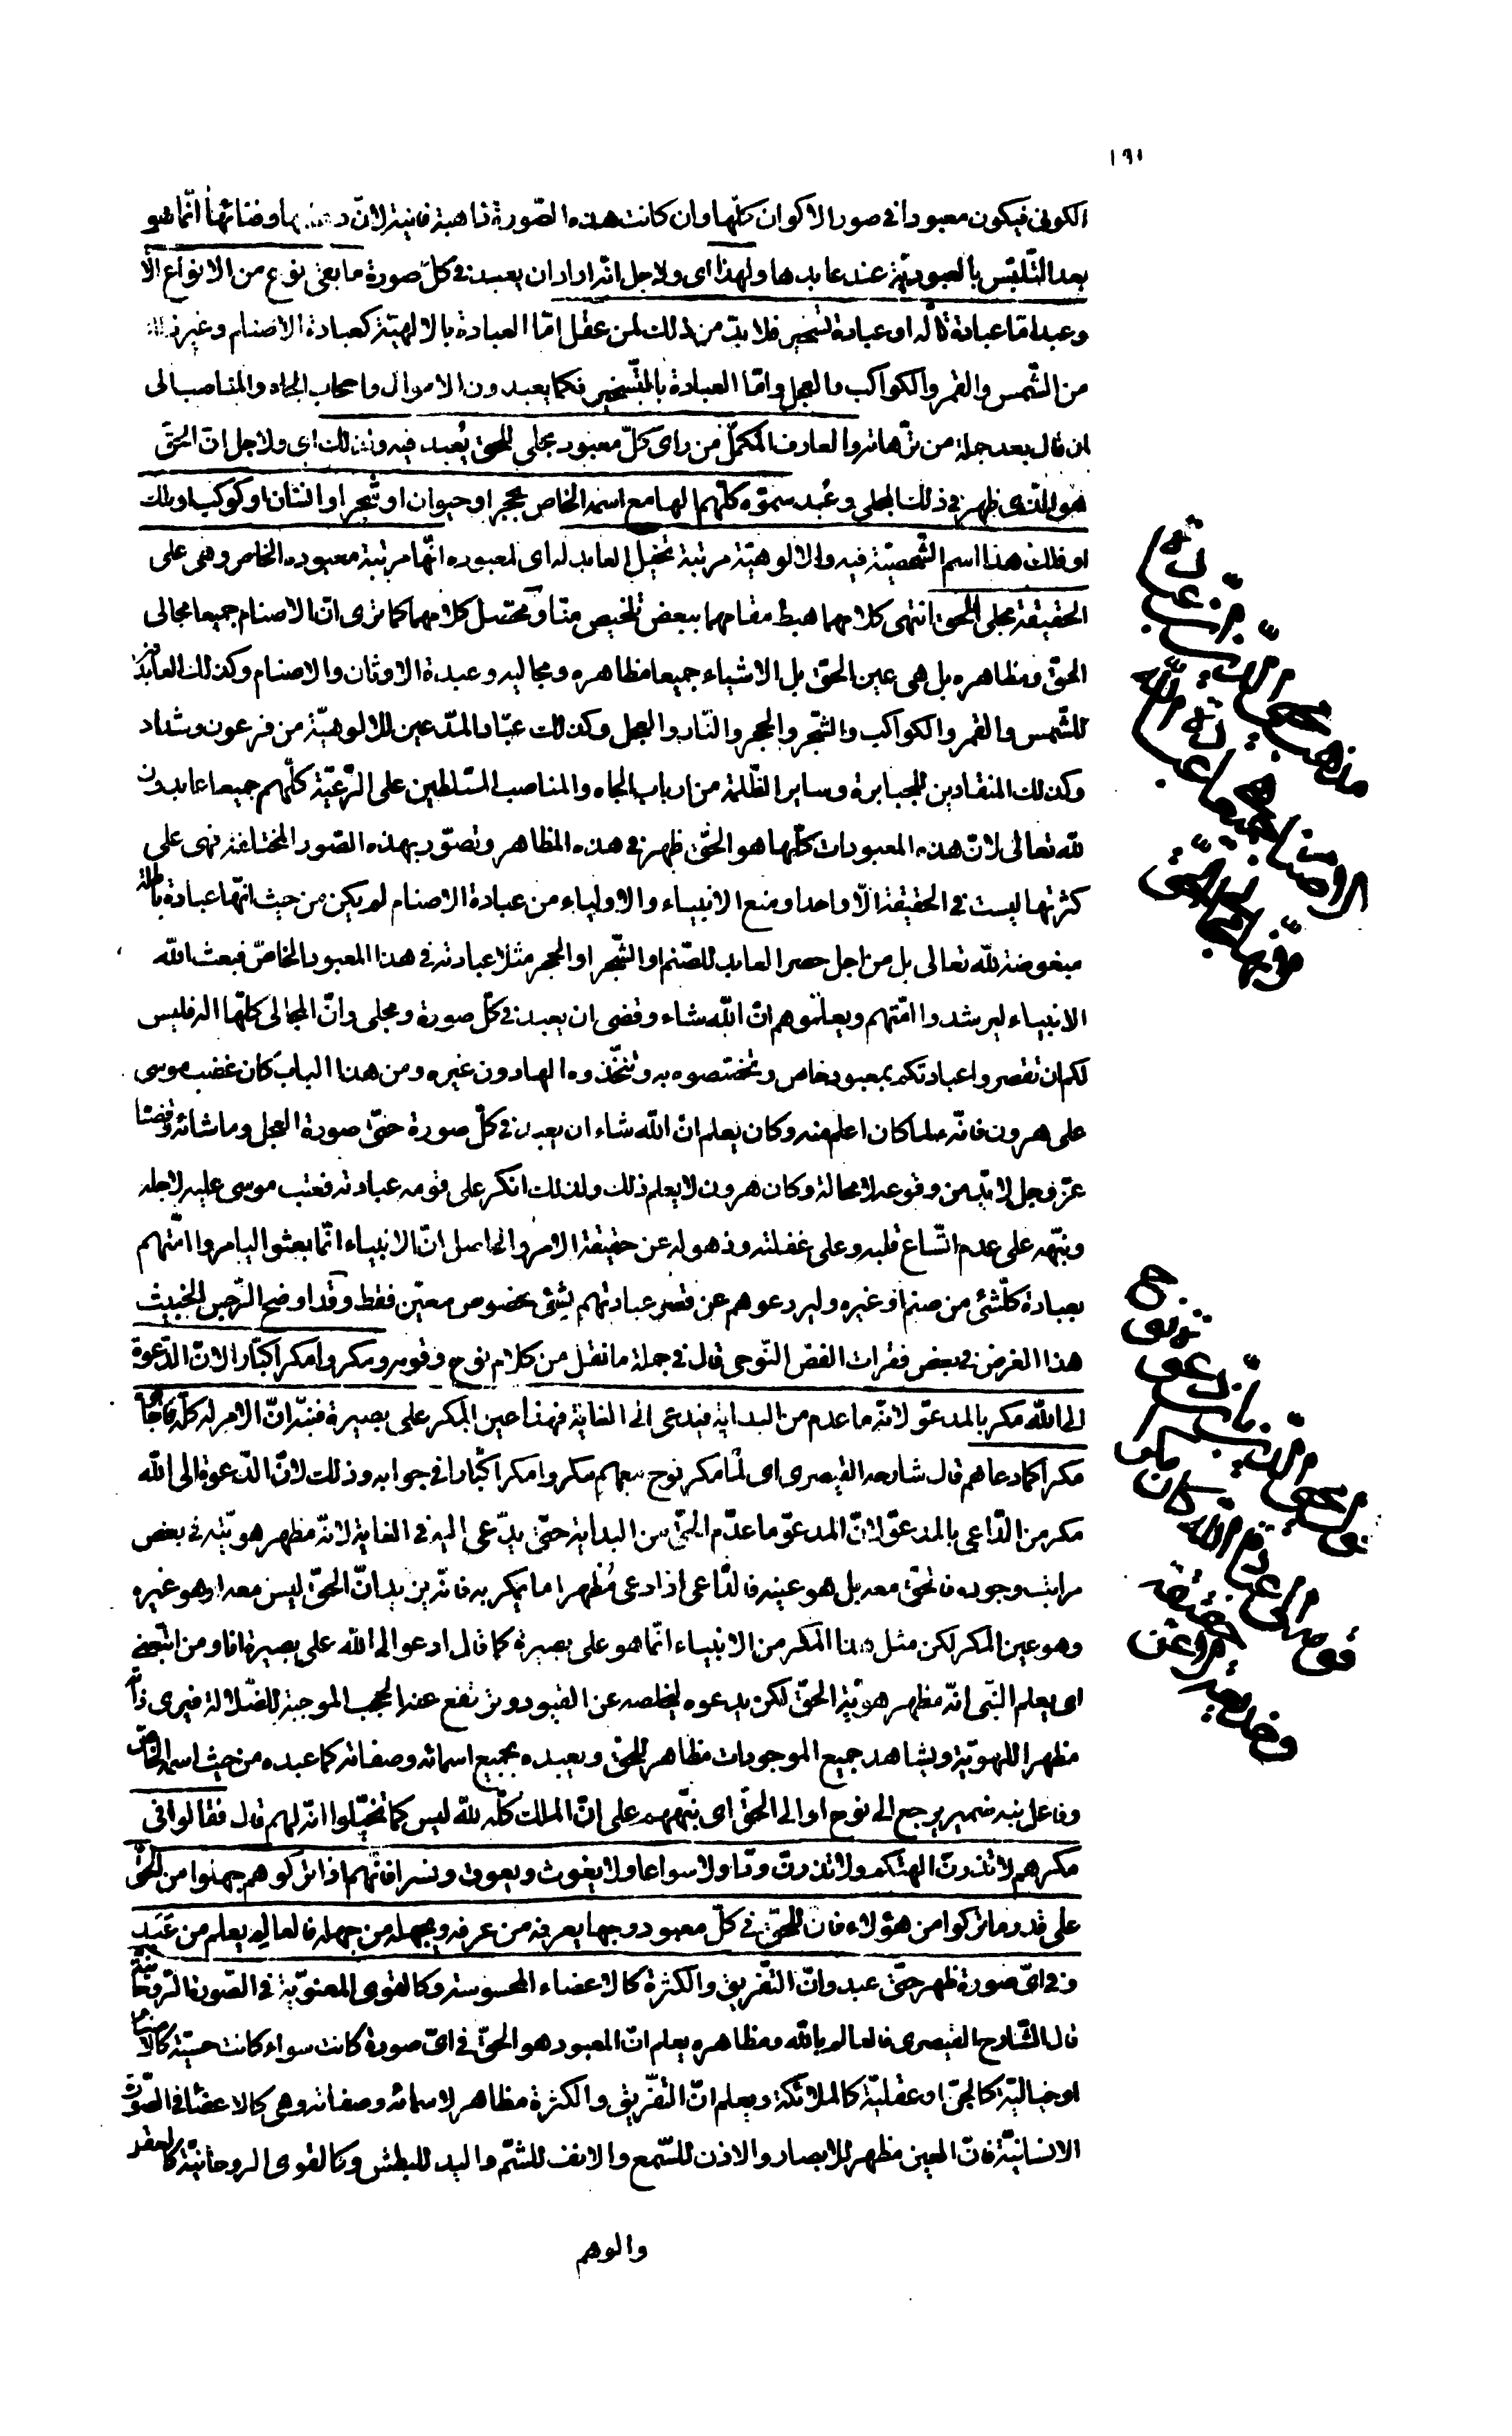 ١٦١
الكونى فيكون معبودا فى صور الاكوان كلّها وان كانت هذه الصّورة ذاهبة فانية لانّ ذهابها وفنائها انّما هو
بعد التّلبّس بالعبوديّة عند عابدها ولهذا اى ولاجل انّه اراد ان يعبد فى كلّ صورة ما بقى نوع من الانواع الّا
وعبد امّا عبادة تألّه او عبادة تسخير فلا بدّ من ذلك لمن عقل امّا العبادة بالالهيّة كعبادة الاصنام وغيرها
من الشّمس والقمر والكواكب والعجل وامّا العبادة بالتّسخير فكما يعبدون الاموال واصحاب الجاه والمناصب الى
ان قال بعد جملة من ترّهاته والعارف المكمّل من راى كلّ معبود مجلى للحقّ يُعبد فيه ولذلك اى ولاجل انّ الحقّ
هو الّذى ظهر فى ذلك المجلى وعُبد سمّوه كلّهم الها مع اسمه الخاص بحجر او حيوان او شجر او انسان او كوكب او ملك
او فلك هذا اسم الشّخصيّة فيه والالوهيّة مرتبة تخيل العابد له اى لمعبوده انّها مرتبة معبوده الخاص وهى على
الحقيقة مجلى الحقّ انتهى كلامهما هبط مقامهما ببعض تلخيص منّا ومحصّل كلامهما كما ترى انّ الاصنام جميعا مجالى
الحقّ ومظاهره بل هى عين الحقّ بل الاشياء جميعا مظاهره ومجاليه وعبدة الاوثان والاصنام وكذلك العابدون
للشّمس والقمر والكواكب والشّجر والحجر والنّار والعجل وكذلك عبّاد المدّعين للالوهيّة من فرعون وشدّاد
وكذلك المنقادين للجبابرة وساير الظّلمة من ارباب الجاه والمناصب المتسلّطين على الرّعيّة كلّهم جميعا عابدون
للّه تعالى لانّ هذه المعبودات كلّها هو الحقّ ظهر فى هذه المظاهر وتصوّر بهذه الصّور المختلفة فهى على
كثرتها ليست فى الحقيقة الّا واحدا ومنع الانبياء والاولياء من عبادة الاصنام لم يكن من حيث انّها عبادة باطلة
مبغوضة للّه تعالى بل من اجل حصر العابد للصّنم او الشّجر او الحجر مثلا عبادته فى هذا المعبود الخاصّ فبعث اللّه
الانبياء ليرشدوا امّتهم ويعلّموهم انّ اللّه شاء وقضى ان يعبد فى كلّ صورة ومجلى وانّ المجالى كلّها اله فليس
لكم ان تقصروا عبادتكم بمعبود خاص وتختصوه به وتتّخذوه الها دون غيره ومن هذا الباب كان غضب موسى
على هرون فانّه لما كان اعلم منه وكان يعلم انّ اللّه شاء ان يعبد فى كلّ صورة حتّى صورة العجل وما شائه وقضا
عزّ وجل لا بدّ من وقوعه لا محالة وكان هرون لا يعلم ذلك ولذلك انكر على قومه عبادته فعتب موسى عليه لاجله
ونبّهه على عدم اتّساع قلبه وعلى غفلته وذهوله عن حقيقة الامر والحاصل انّ الانبياء انّما بعثوا ليامروا امّتهم
بعبادة كلّ شئ من صنم او غيره وليردعوهم عن قصر عبادتهم بشئ بخصوص معيّن فقط وقد اوضح الرّجس الخبيث
هذا الغرض فى بعض فقرات الفصّ النّوحى قال فى جملة ما نقل من كلام نوح وقومه ومكروا مكرا كبّارا لانّ الدّعوة
الى اللّه مكر بالمدعوّ لانّه ما عدم من البداية فيدعى الى الغاية فهذا عين المكر على بصيرة فنبّه انّ الامر له كلّه فاجابوه
مكرا كما دعاهم قال شارحه القيصرى اى لمّا مكر نوح معهم مكروا مكرا كبّارا فى جوابه وذلك لانّ الدّعوة الى اللّه
مكر من الدّاعى بالمدعوّ لانّ المدعوّ ما عدم الحقّ من البداية حتّى يدّعى اليه فى الغاية لانّه مظهر هويّته فى بعض
مراتب وجوده فالحقّ معه بل هو عينه فالدّاعى اذا دعى مُظهرا ما يمكر به فانّه يريد انّ الحقّ ليس معه او هو غيره
وهو عين المكر لكن مثل هذا المكر من الانبياء انّما هو على بصيرة كما قال ادعوا الى اللّه على بصيرة انا ومن اتّبعنى
اى يعلم النّبى انّه مظهر هويّة الحقّ لكن يدعوه ليخلصه عن القيود وترتفع عنه الحجب الموجبة للضّلالة فيرى ذاته
مظهرا للهويّة ويشاهد جميع الموجودات مظاهر للحقّ ويعبده بجميع اسمائه وصفاته كما عبده من حيث اسمه الخاصّ
وفاعل نبه ضمير يرجع الى نوح او الى الحقّ اى نبّههم على انّ الملك كلّه للّه ليس كما تخيّلوا انّه لهم قال فقالوا فى
مكرهم لا تذرنّ الهتكم ولا تذرنّ ودّا ولا سواعا ولا يغوث ويعوق ونسرا فانّهم اذا تركوهم جهلوا من الحقّ
على قدر ما تركوا من هؤلاء فان للحقّ فى كلّ معبود وجها يعرفه من عرفه ويجهله من جهله فالعالم يعلم من عَبَد
وفى اىّ صورة ظهر حتّى عبد وانّ التّفريق والكثرة كالاعضاء المحسوسة وكالقوى المعنويّة فى الصّورة الرّوحانيّة
قال الشّارح القيصرى فالعالم باللّه ومظاهره يعلم انّ المعبود هو الحقّ فى اىّ صورة كانت سواء كانت حسيّة كالاصنام
او خياليّة كالجنّ او عقليّة كالملائكة ويعلم انّ التّفريق والكثرة مظاهر لاسمائه وصفاته وهى كالاعضاء فى الصّورة
الانسانيّة فانّ العين مظهر للابصار والاذن للسّمع والانف للشّمّ واليد للبطش وكالقوى الروحانيّة كالعقل
والوهم